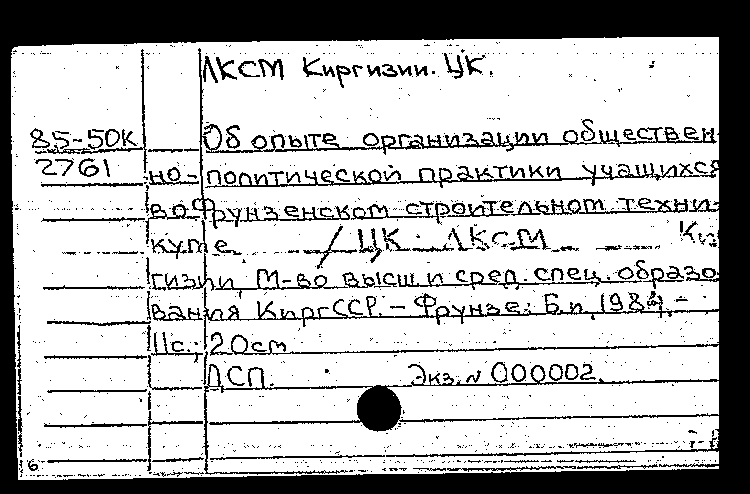 ЛКСМ Киргизии. ЦК.
85-50к Об опыте организации обществен-
2761 но-политической практики учащихся
во Фрунзенском строительном техни-
куме / ЦК ЛКСМ Кир
гизии, М-во высш и сред. спец. образо
вания КиргССР. – Фрунзе: Б.и, 1984, –
11с.; 20см
ДСП. Экз. № 000002.
6